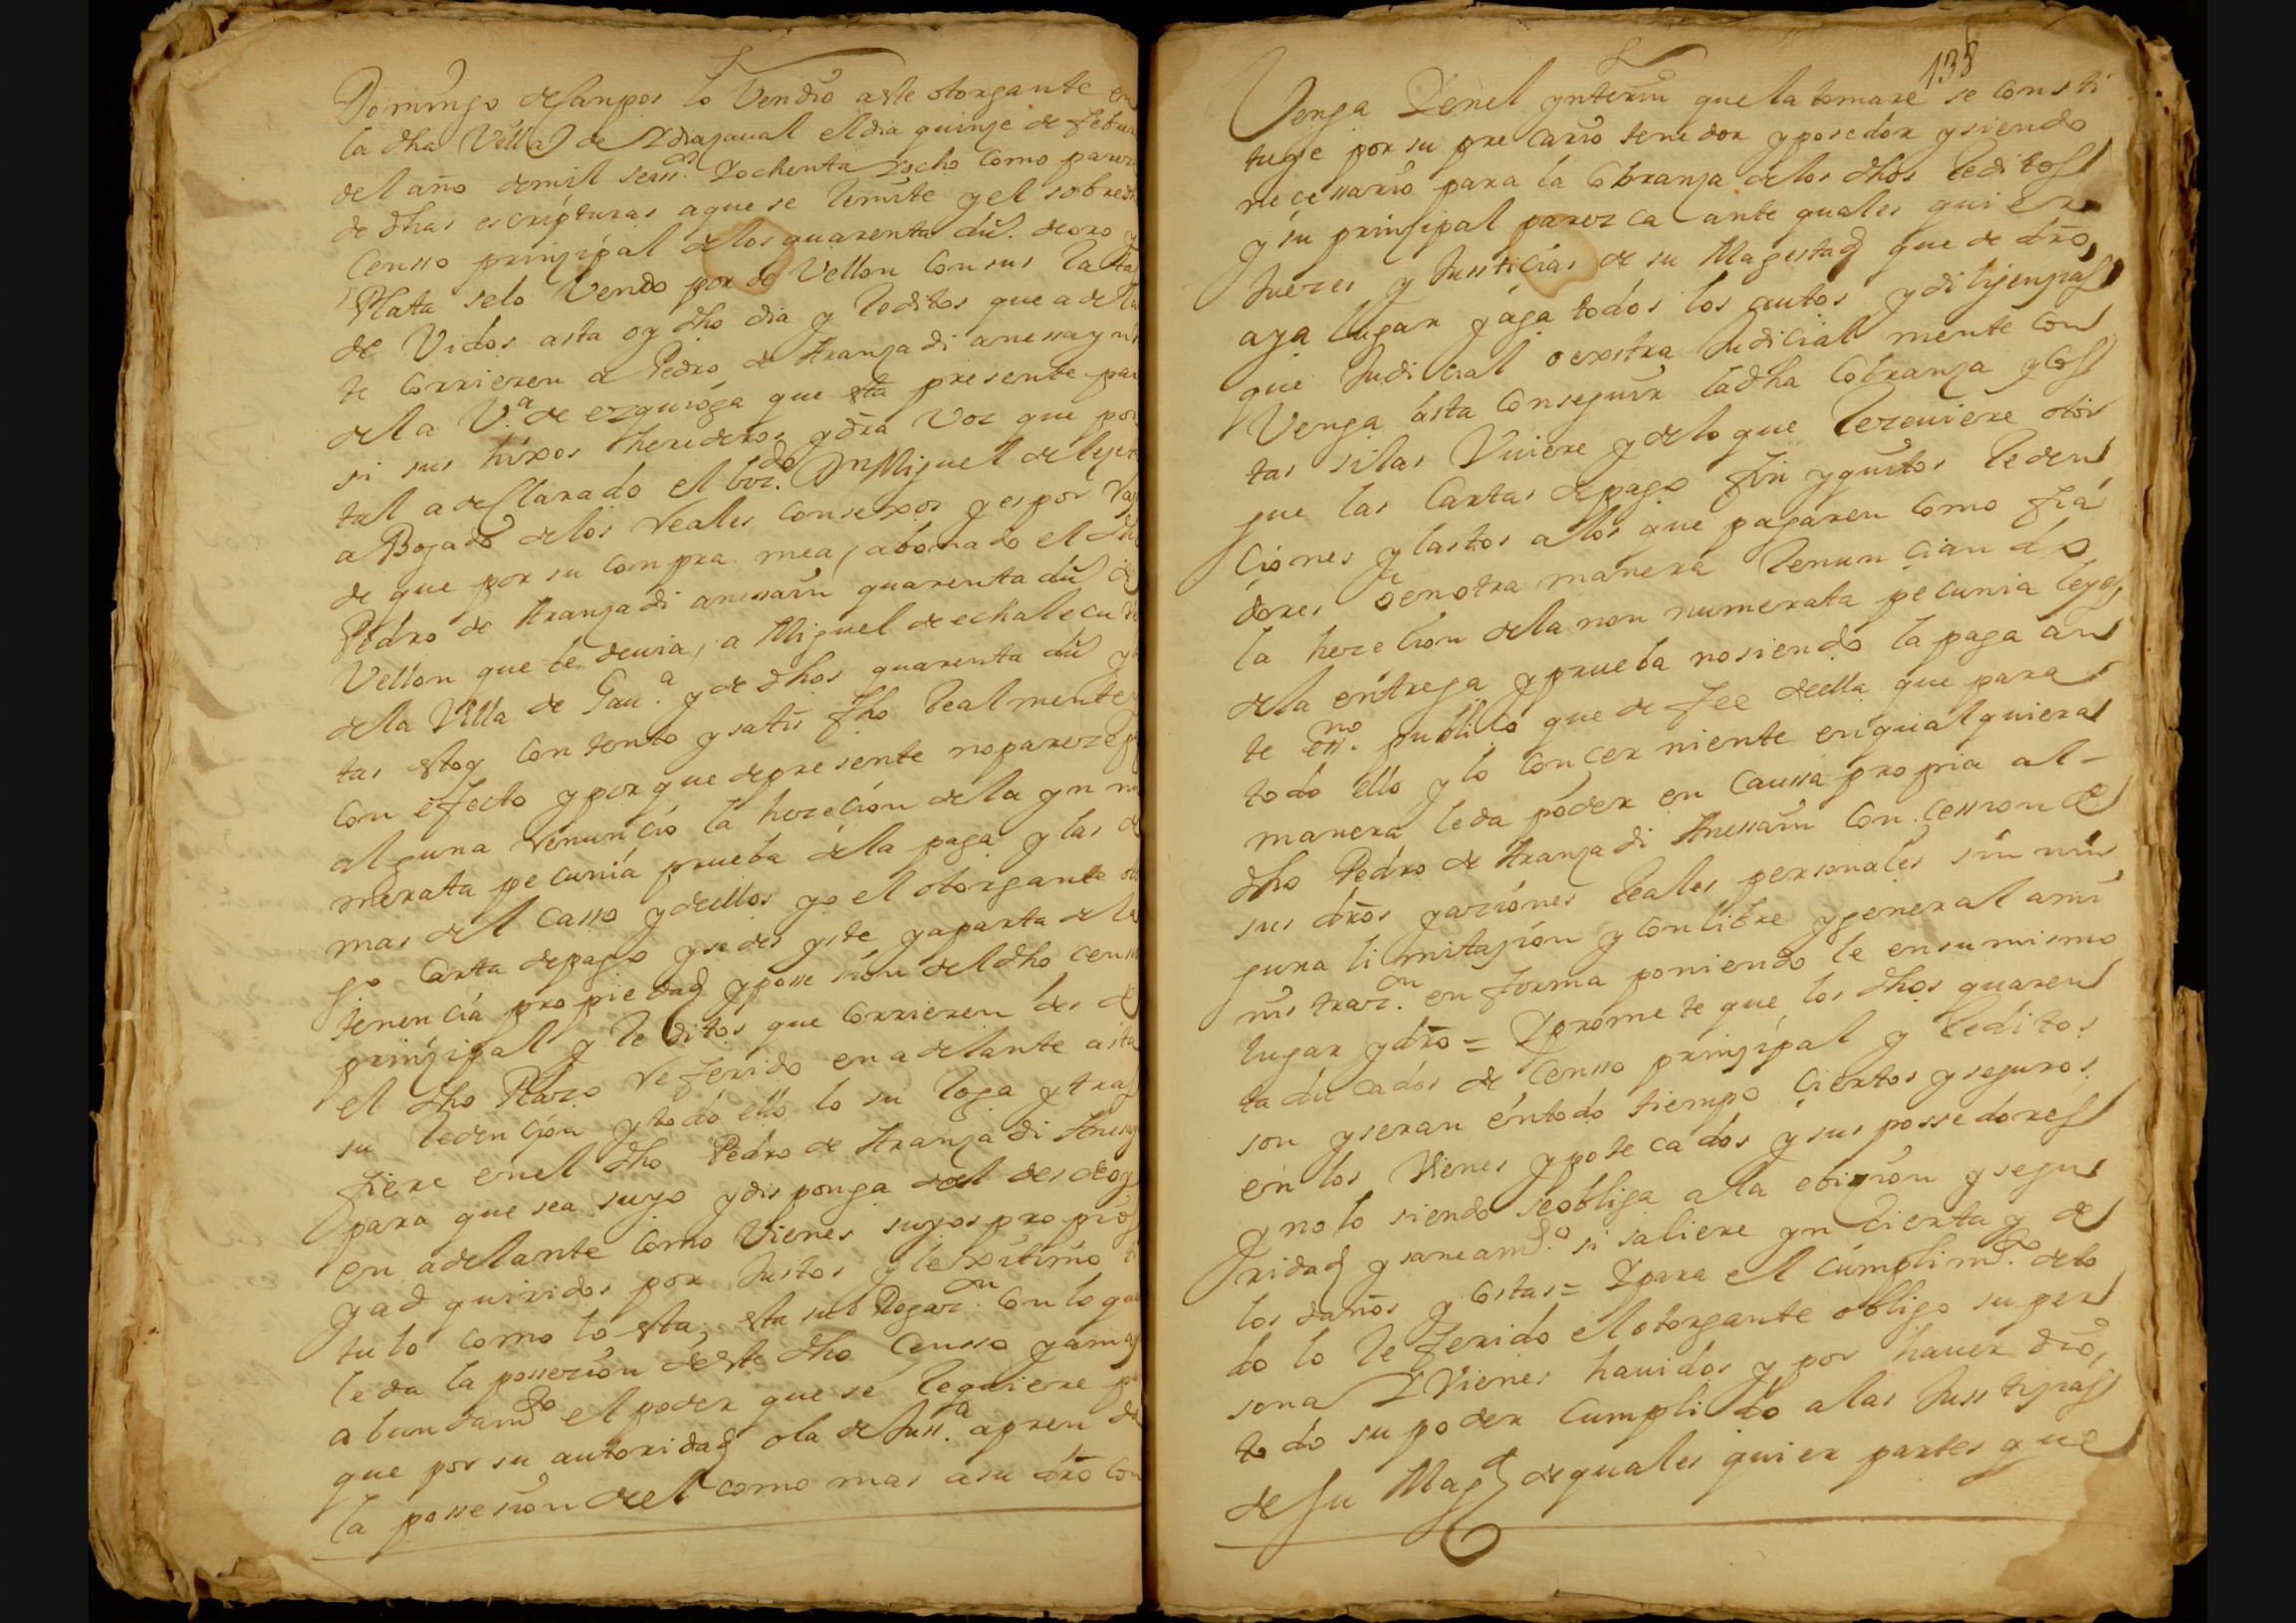 Domingo de Canpos lo Vendio a este otorgante en
la dha Villa de Ydiazaual el dia quinze de febre
del año de mil seiss.os Y ochenta Y ocho como parez
de dhas escripturas a que se Remite y el sobredh
Censso prinzipal de los quarenta du.s de oro y
Plata se lo Vendo por de Vellon con sus
de Vidos asta oy dho dia y Reditos que adela
te corrieren a Pedro de Aranzadi anessayn
de la V.a de ezquioga que esta presente par
si sus hixos herederos y dra Voz que por
tal a declarado el lizz.do Dn Miguel de
a Bogado de los reales consexos y es por
de que por su conpra mea, abonado el dho
Pedro de Aranzadi anessain quarenta du.s de
Vellon que le deuia, a Miguel de echalecu
de la Villa de Gau.a y de dhos quarenta du.s y
tas estoy contento y satis fho Realmente y
con efecto y porque de presente no pareze
alguna renuncio la hezecion de la yn nu
merata pecunia prueba de la paga y las de
mas del casso y dellos yo el otorgante
go carta de pago y se des yste y aparta de la
tenencia propiedad y posse sion del dho censso
prinzipal y Reditos que corrieren des de
el dho Plazo referido en adelante asta
su Redencion y todo ello lo su Roga y tras
fiere en el dho Pedro de Aranzadi Aness
para que sea suyo y disponga del des de oy
en adelante como Vienes suyos propios
y ad quiridos por Justos y lexitimo ti
tulo como lo esta, esta sub Rogaz.on con lo qu
le da la possezion deste dho Censso y a mas
a bundam.to el poder que se Requiere pa
que por su autoridad o la de Juss.a apren da
la posse sion del como mas a su dro con
138
Venga Y en el ynterin que la tomare se consti
tuye por su precario tenedor y posedor y siendo
necessario para la Cobranza de los dhos Reditos
y su prinzipal parezca ante quales quier
Juezes y Justicias de su Magestad que de dro
aya lugar y aga todos los autos y dilijenzias
que Judicial o exstra Judicial mente con
Venga asta conseguir la dha Cobranza y cos
tas si las Vuiere y de lo que Rezeuiere otor
gue las Cartas de pago fin y quitos Reden
ciones y lastos a los que pagaren como fia
dores o en otra manera Renunciando
la hezecion de la non numerata pecunia leyes
de la entrega y prueba no siendo la paga an
te ess.no publico que de fee della que para
todo ello y lo concerniente en qualquiera
manera le da poder en Caussa propria al -
dho Pedro de Aranzadi Anessain con cession de
sus dros y aziones Reales personales sin nin
guna limitazion y con libre y general ami
nis traz.on en forma poniendo le en su mismo
lugar y dro = Y promete que los dhos quaren
ta ducados de Censso prinzipal y Reditos
son y seran en todo tiempo ciertos y seguros
en los Vienes ypotecados y sus possedores
y no lo siendo se obliga a la ebizion y segu
ridad y saneam.to si saliere yn cierta y de
los daños y Costas = Y para el cumplim.to de to
do lo Referido el otorgante obligo su per
sona Y Vienes hauidos y por hauer dio,
todo su poder Cumplido a las Justizias
de su Mag.d de quales quier partes que